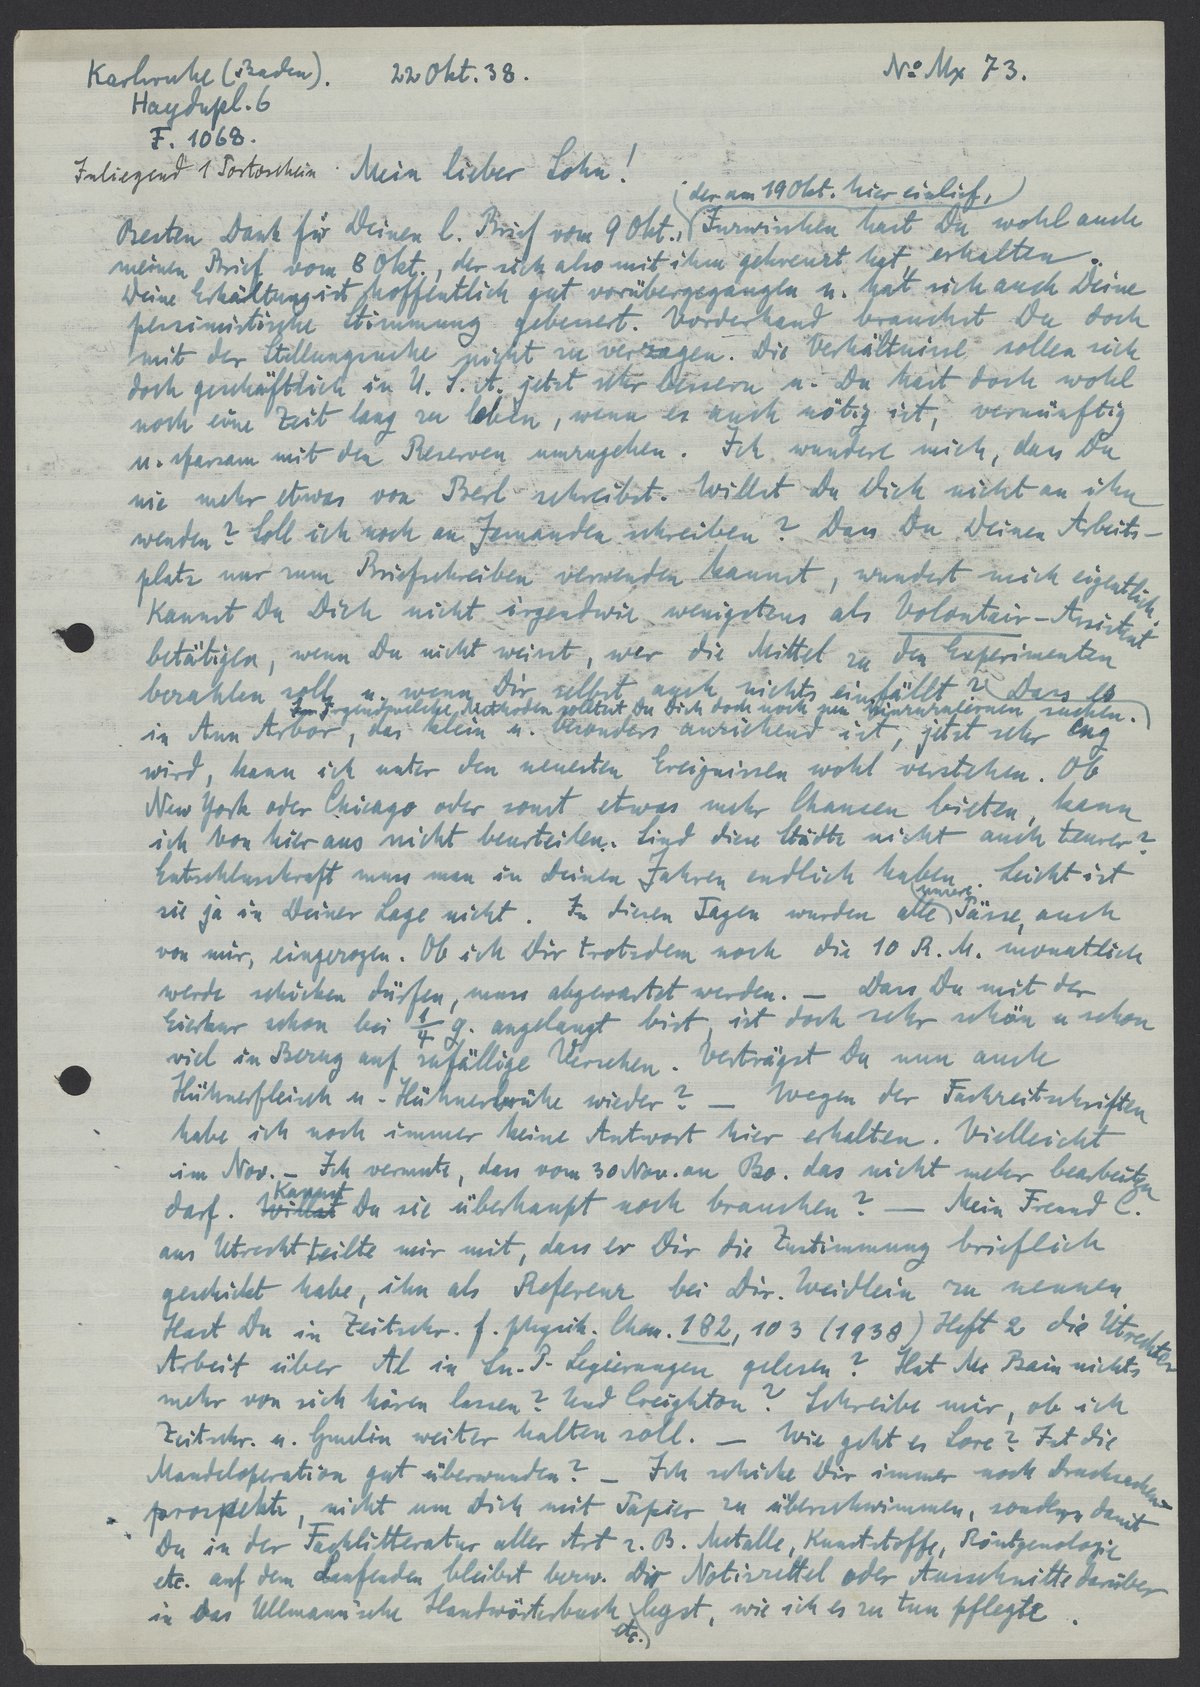 Karlsruhe (Baden). 22 Okt. 38. No Mx 73.
Haydnpl. 6
F. 1068.
Inliegend 1 Portoschein Mein lieber Sohn!
(der am 19 Okt. hier einlief,)
Besten Dank für Deinen l. Brief vom 9 Okt., Inzwischen hast Du wohl auch
meinen Brief vom 8 Okt., der sich also mit ihm gekreuzt hat, erhalten.
Deine Erkältung ist hoffentlich gut vorübergegangen u. hat sich auch Deine
pessimistische Stimmung gebessert. Vorderhand brauchst Du doch
mit der Stellungsuche nicht zu verzagen. Die Verhältnisse sollen sich
doch geschäftlich in U. S. A. jetzt sehr bessern u. Du hast doch wohl
noch eine Zeit lang zu leben, wenn es auch nötig ist, vernünftig
u. sparsam mit den Reserven umzugehen. Ich wundere mich, dass Du
nie mehr etwas von Berl schreibst. Willst Du Dich nicht an ihn
wenden? Soll ich noch an Jemanden schreiben? Dass Du Deinen Arbeits-
platz nur zum Briefschreiben verwenden kannst, wundert mich eigentlich.
Kannst Du Dich nicht irgendwie wenigstens als Volontair-Assistent
betätigen, wenn Du nicht weisst, wer die Mittel zu den Experimenten
bezahlen soll, u. wenn Dir selbst auch nichts einfällt? Dass es
Irgendwelche Methoden solltest Du Dich doch noch neu hinzuzulernen suchen.
in Ann Arbor, das klein u. besonders anziehend ist, jetzt sehr eng
wird, kann ich unter den neuesten Ereignissen wohl verstehen. Ob
New York oder Chicago oder sonst etwas mehr Chancen bieten, kann
ich von hier aus nicht beurteilen. Sind diese Städte nicht auch teurer?
Entschlusskraft muss man in Deinen Jahren endlich haben. Leicht ist
sie ja in Deiner Lage nicht. In diesen Tagen wurden alle unsere Pässe, auch
von mir, eingezogen. Ob ich Dir trotzdem noch die 10 R. M. monatlich
werde schicken dürfen, muss abgewartet werden. — Dass Du mit der
Eierkur schon bei 1/4 g. angelangt bist, ist doch sehr schön u schon
viel in Bezug auf zufällige Versehen. Verträgst Du nun auch
Hühnerfleisch u. Hühnerbrühe wieder? — Wegen der Fachzeitschriften
habe ich noch immer keine Antwort hier erhalten. Vielleicht
im Nov. — Ich vermute, dass vom 30 Nov. an Bo. das nicht mehr bearbeiten
darf. Willst Kannst Du sie überhaupt noch brauchen? — Mein Freund C.
aus Utrecht teilte mir mit, dass er Dir die Zustimmung brieflich
geschickt habe, ihn als Referenz bei Dir. Weidlein zu nennen
Hast Du in Zeitschr. f. physik. Chem. 182, 103 (1938) Heft 2 die Utrechter
Arbeit über Al in Sn-P-Legierungen gelesen? Hat Mc Bain nichts
mehr von sich hören lassen? Und Creighton? Schreibe mir, ob ich
Zeitschr. u. Gmelin weiter halten soll. — Wie geht es Lore? Ist die
Mandeloperation gut überwunden? — Ich schicke Dir immer noch Drucksachen-
prospekte, nicht um Dich mit Papier zu überschwimmen, sondern damit
Du in der Fachlitteratur aller Art z. B. Metalle, Kunststoffe, Röntgenologie
etc. auf dem Laufenden bleibst bezw. Dir Notizzettel oder Ausschnitte darüber
in das Ullmann'sche Handwörterbuch etc.) legst, wie ich es zu tun pflegte.